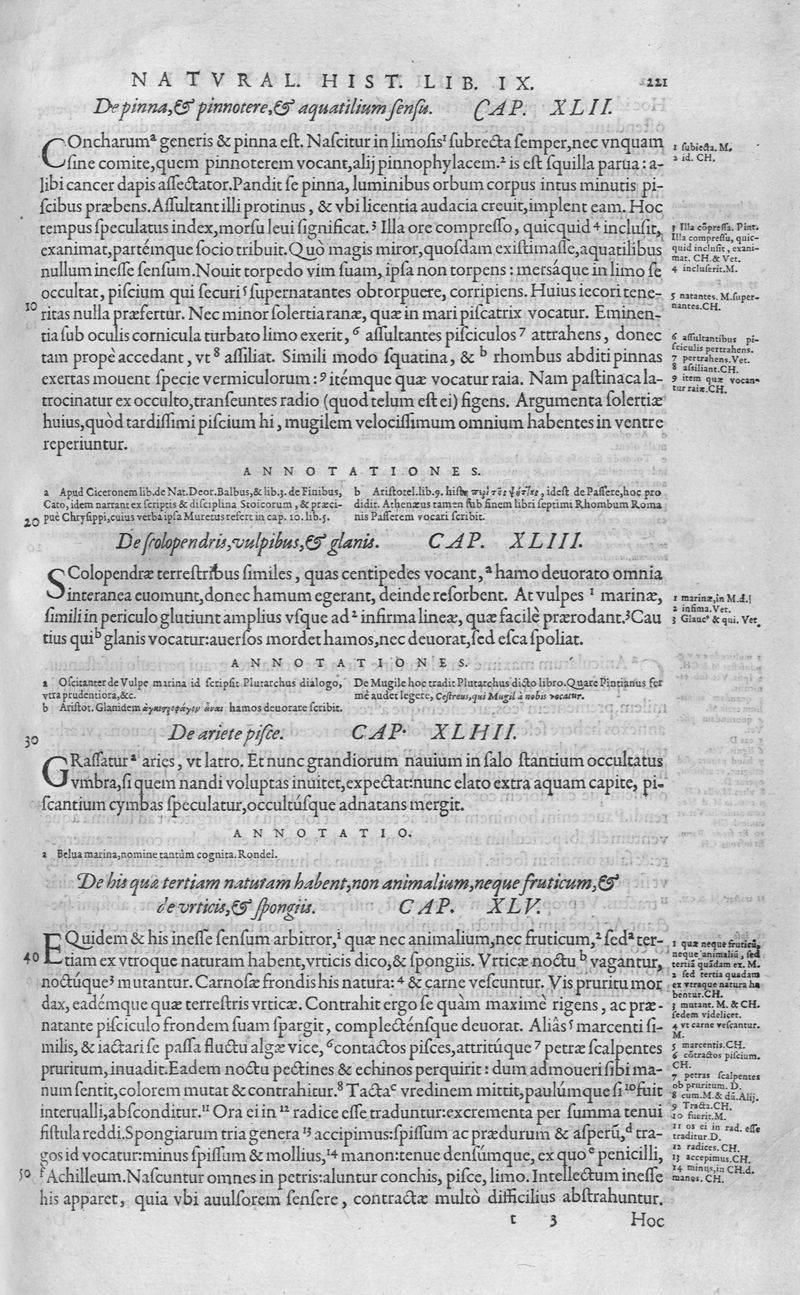 NATVRAL. HIST. LIB. IX. 221
De pinna, & pinnotere, & aquatilium ſenſu. CAP. XLII.
COncharumª generis & pinna eſt. Naſcitur in limoſis¹ ſubrecta ſemper, nec vnquam
ſine comite, quem pinnoterem vocant, alij pinnophylacem.² is eſt ſquilla parua: a-
libi cancer dapis aſſectator. Pandit ſe pinna, luminibus orbum corpus intus minutis pi-
ſcibus præbens. Aſſultant illi protinus, & vbi licentia audacia creuit, implent eam. Hoc
tempus ſpeculatus index, morſu leui ſignificat.³ Illa ore compreſſo, quicquid⁴ incluſit,
exanimat, partémque ſocio tribuit. Quò magis miror, quoſdam exiſtimaſſe, aquatilibus
nullum ineſſe ſenſum. Nouit torpedo vim ſuam, ipſa non torpens: mersáque in limo ſe
occultat, piſcium qui ſecuri⁵ ſupernatantes obtorpuere, corripiens. Huius iecori tene-
10 ritas nulla præfertur. Nec minor ſolertia ranæ, quæ in mari piſcatrix vocatur. Eminen-
tia ſub oculis cornicula turbato limo exerit, ⁶ aſſultantes piſciculos⁷ attrahens, donec
tam propè accedant, vt⁸ aſſiliat. Simili modo ſquatina, & ᵇ rhombus abditi pinnas
exertas mouent ſpecie vermiculorum: ⁹ itémque quæ vocatur raia. Nam paſtinaca la-
trocinatur ex occulto, tranſeuntes radio (quod telum eſt ei) figens. Argumenta ſolertiæ
huius, quòd tardiſſimi piſcium hi, mugilem velociſſimum omnium habentes in ventre
reperiuntur.
1 ſubiecta. M.
2 id. CH.
3 Illa cōpreſſa. Pint.
Illa compreſſu, quic-
quid incluſit, exani-
mat. CH. & Vet.
4 incluſerit. M.
5 natantes. M. ſuper-
nantes. CH.
6 aſſultantibus pi-
ſciculis pertrahens.
7 pertrahens. Vet.
8 aſſiliant. CH.
9 item quæ vocan-
tur raiæ. CH.
ANNOTATIONES.
a Apud Ciceronem lib. de Nat. Deor. Balbus, & lib. 3. de Finibus,
Cato, idem narrant ex ſcriptis & diſciplina Stoicorum, & præci-
20 puè Chryſippi, cuius verba ipſa Muretus refert in cap. 10. lib. 5.
b Ariſtotel. lib. 9. hiſt. , ideſt de Paſſere, hoc pro
didit. Athenæus tamen ſub finem libri ſeptimi Rhombum Roma
nis Paſſerem vocari ſcribit.
De ſcolopendris, vulpibus, & glanis. CAP. XLIII.
SColopendræ terreſtribus ſimiles, quas centipedes vocant, ª hamo deuorato omnia
interanea euomunt, donec hamum egerant, deinde reſorbent. At vulpes ¹ marinæ,
ſimili in periculo glutiunt amplius vſque ad² infirma lineæ, quæ facilè prærodant.³ Cau
tius qui ᵇ glanis vocatur: auerſos mordet hamos, nec deuorat, ſed eſca ſpoliat.
1 marinæ, in M. d.
2 infima. Vet.
3 Glauc⁹ & qui. Vet.
ANNOTATIONES.
a Oſcitanter de Vulpe marina id ſcripſit Plutarchus dialogo,
vtra prudentiora, &c.
b Ariſtot. Glanidem hamos deuorare ſcribit.
De Mugile hoc tradit Plutarchus dicto libro. Quare Pintianus fer
mè audet legere, Ceſtreus, qui Mugil à nobis vocatur.
De ariete piſce. CAP. XLIIII.
30
GRaſſaturª aries, vt latro. Et nunc grandiorum nauium in ſalo ſtantium occultatus
vmbra, ſi quem nandi voluptas inuitet, expectat: nunc elato extra aquam capite, pi-
ſcantium cymbas ſpeculatur, occultúſque adnatans mergit.
ANNOTATIO.
a Belua marina, nomine tantùm cognita. Rondel.
De his quæ tertiam naturam habent, non animalium, neque fruticum, &
de vrticis, & ſpongiis. CAP. XLV.
EQuidem & his ineſſe ſenſum arbitror, ¹ quæ nec animalium, nec fruticum, ² ſedª ter-
40 tiam ex vtroque naturam habent, vrticis dico, & ſpongiis. Vrticæ noctu ᵇ vagantur,
noctúque³ mutantur. Carnoſæ frondis his natura: ⁴ & carne veſcuntur. Vis pruritu mor
dax, eadémque quæ terreſtris vrticæ. Contrahit ergo ſe quàm maximè rigens, ac præ-
natante piſciculo frondem ſuam ſpargit, complecténſque deuorat. Aliàs⁵ marcenti ſi-
milis, & iactari ſe paſſa fluctu algæ vice, ⁶ contactos piſces, attritúque ⁷ petræ ſcalpentes
pruritum, inuadit. Eadem noctu pectines & echinos perquirit: dum admoueri ſibi ma-
num ſentit, colorem mutat & contrahitur.⁸ Tactaᶜ vredinem mittit, paulúmque ſi ¹⁰ fuit
interualli, abſconditur.¹¹ Ora ei in ¹² radice eſſe traduntur: excrementa per ſumma tenui
fiſtula reddi. Spongiarum tria genera ¹³ accipimus: ſpiſſum ac prædurum & aſperū, ᵈ tra-
gos id vocatur: minus ſpiſſum & mollius, ¹⁴ manon: tenue denſúmque, ex quo ᵉ penicilli,
50 ᶠ Achilleum. Naſcuntur omnes in petris: aluntur conchis, piſce, limo. Intellectum ineſſe
his apparet, quia vbi auulſorem ſenſere, contractæ multò difficilius abſtrahuntur.
1 quæ neque fruticū,
neque animaliū, ſed
tertiā quādam ex. M.
2 ſed tertia quadam
ex vtraque natura ha
bentur. CH.
3 mutant. M. & CH.
ſedem videlicet.
4 vt carne veſcantur.
M.
5 marcentis. CH.
6 cōtractos piſcium.
CH.
7 petras ſcalpentes
ob pruritum. D.
8 cum. M. & dū. Alij.
9 Tracta. CH.
10 fuerit. M.
11 os ei in rad. eſſe
traditur. D.
12 radices. CH.
13 accepimus. CH.
14 minus, in CH. d.
manos. CH.
t 3 Hoc